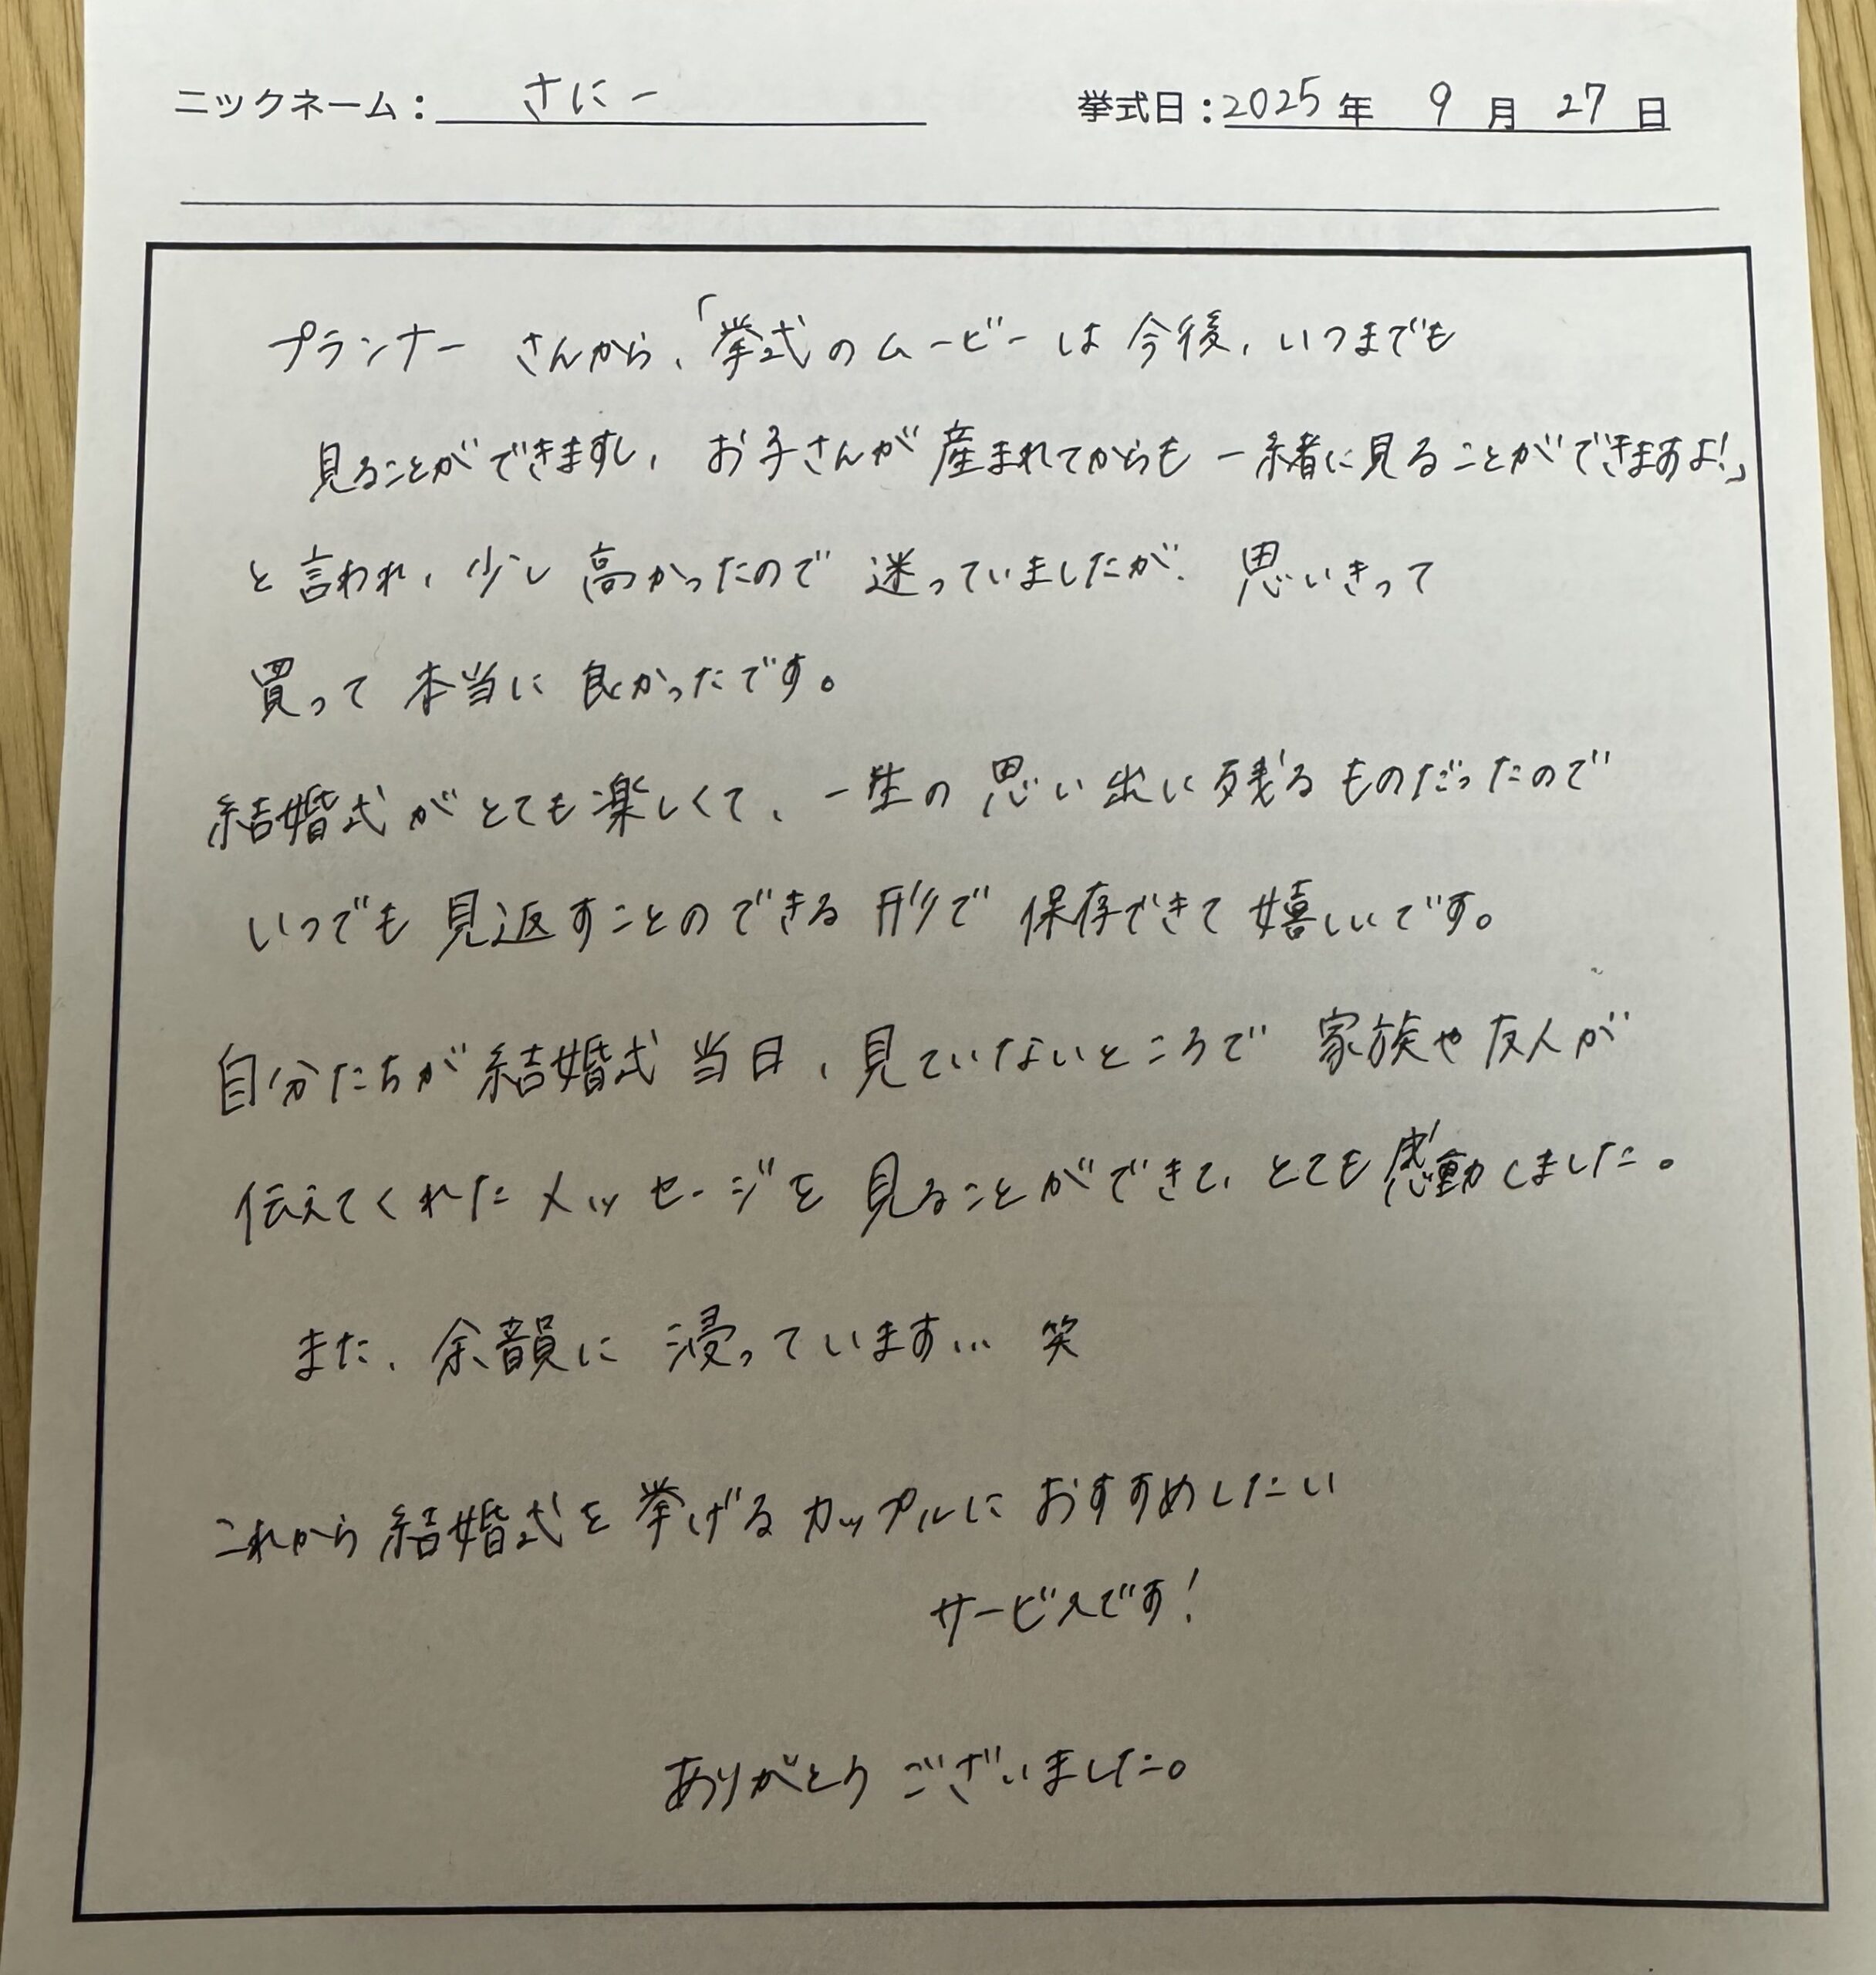 ニックネーム： さにー 挙式日：2025年 9月 27日
プランナー さんから、「挙式のムービーは今後、いつまでも
見ることができますし、お子さんが産まれてからも一緒に見ることができますよ!」
と言われ、少し高かったので迷っていましたが、思いきって
買って本当に良かったです。
結婚式がとても楽しくて、一生の思い出に残るものだったので
いつでも見返すことのできる形で保存できて嬉しいです。
自分たちが結婚式当日、見ていないところで家族や友人が
伝えてくれたメッセージを見ることができて、とても感動しました。
また、余韻に浸っています… 笑
これから結婚式を挙げるカップルにおすすめしたい
サービスです!
ありがとうございました。